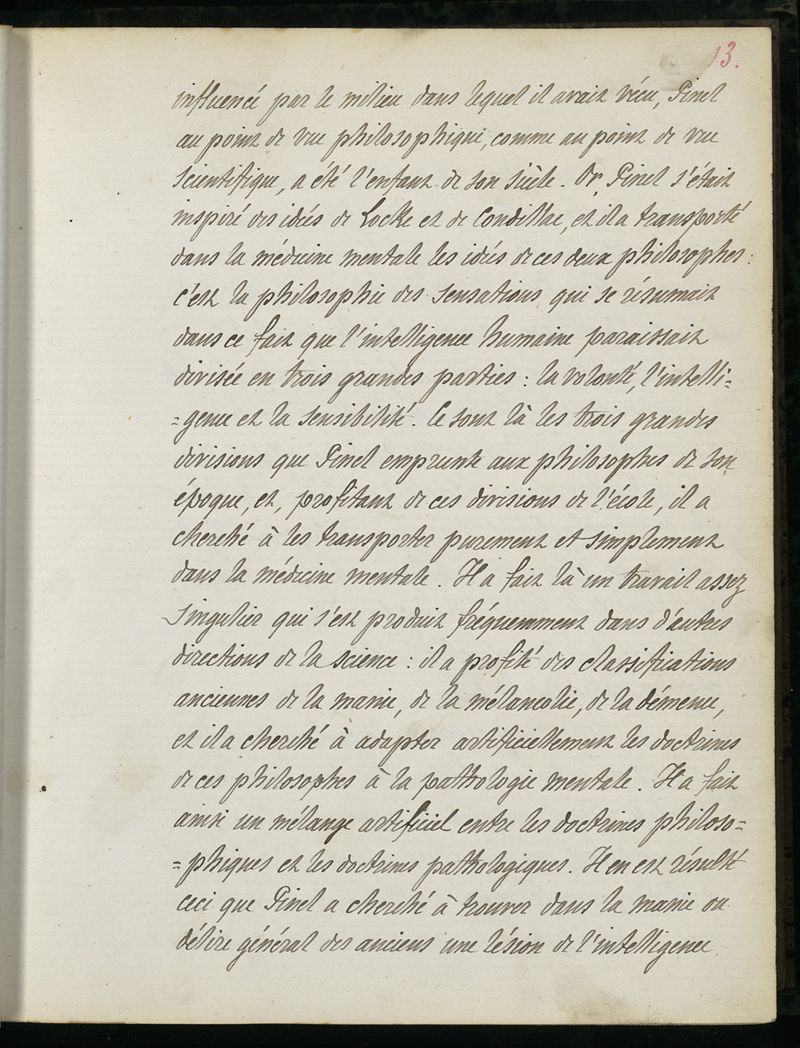 13.
influencé par le milieu dans lequel il avait vécu, Pinel
au point de vue philosophique, comme au point de vue
scientifique, a été l'enfant de son siècle. Or, Pinel s'était
inspiré des idées de Locke et de Condillac, et il a transporté
dans la médecine mentale les idées de ces deux philosophes :
c'est la philosophie des sensations qui se résumait
dans ce fait que l'intelligence humaine paraissait
divisée en trois grandes parties : la volonté, l'intelli=
=gence et la sensibilité. Ce sont là les trois grandes
divisions que Pinel emprunte aux philosophes de son
époque, et, profitant de ces divisions de l'école, il a
cherché à les transporter purement et simplement
dans la médecine mentale. Il a fait là un travail assez
singulier qui s'est produit fréquemment dans d'autres
directions de la science : il a profité des classifications
anciennes de la manie, de la mélancolie, de la démence,
et il a cherché à adapter artificiellement les doctrines
de ces philosophes à la pathologie mentale. Il a fait
ainsi un mélange artificiel entre les doctrines philoso=
=phiques et les doctrines pathologiques. Il en est résulté
ceci que Pinel a cherché à trouver dans la manie ou
délire général des anciens une lésion de l'intelligence